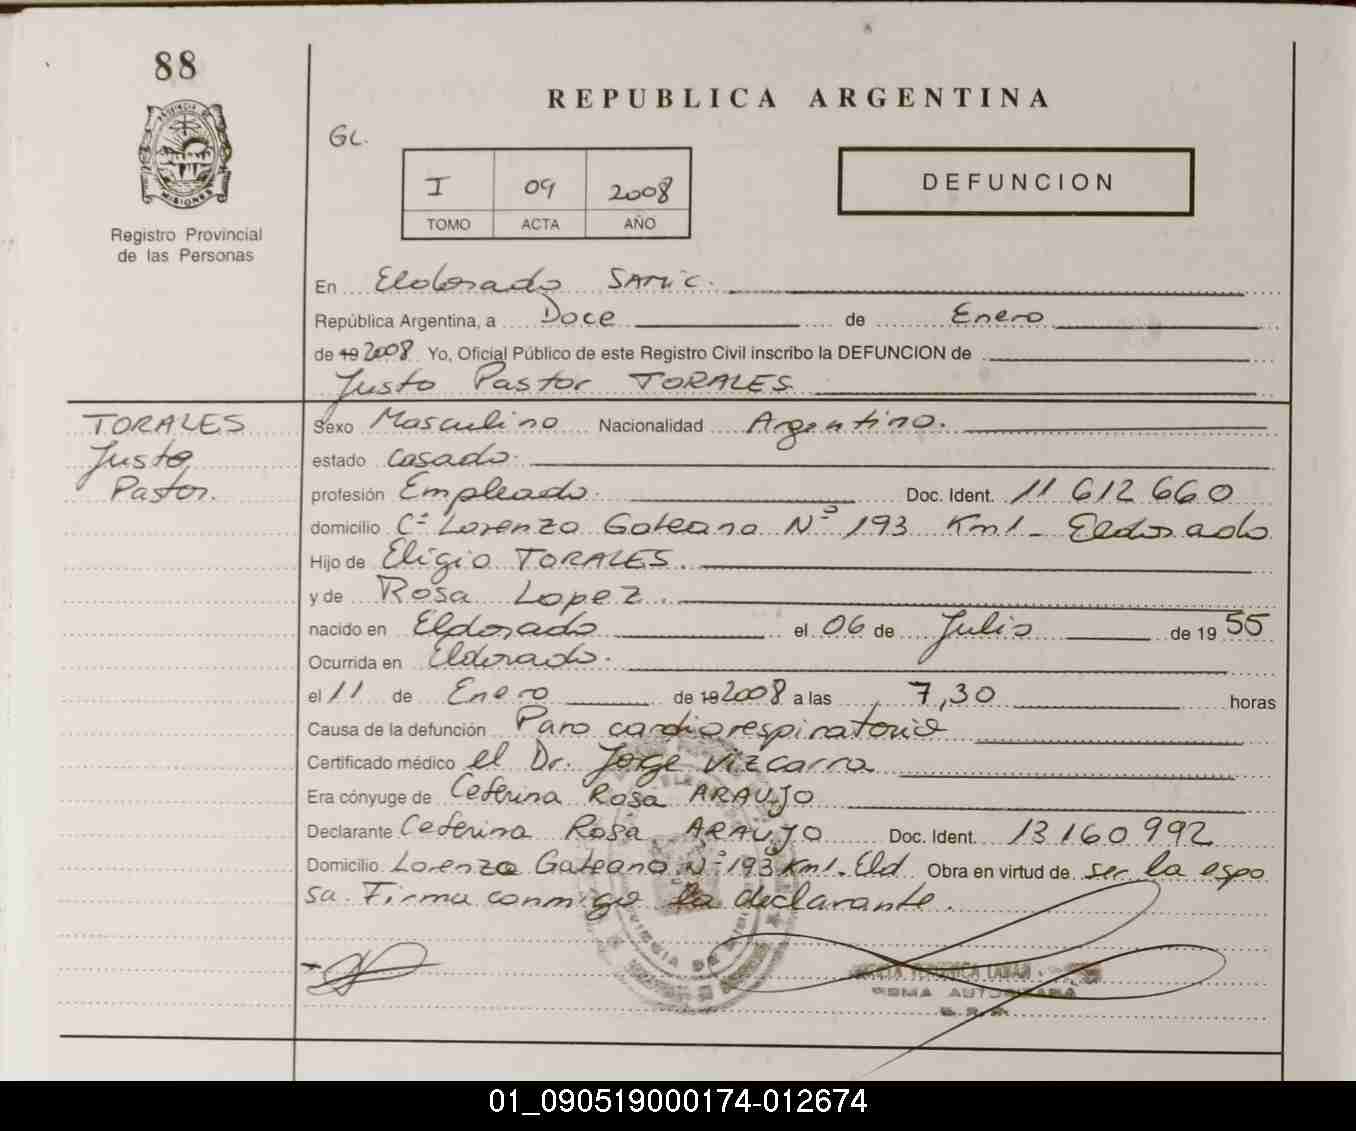 88
REPUBLICA ARGENTINA
GL.
I 09 2008
TOMO ACTA AÑO
DEFUNCION
PROVINCIA DE MISIONES
Registro Provincial
de las Personas
En Eldorado SAMIC.
República Argentina, a Doce de Enero
de 19 2008 Yo, Oficial Público de este Registro Civil inscribo la DEFUNCION de
Justo Pastor TORALES
TORALES
Justo
Pastor.
Sexo Masculino Nacionalidad Argentino.
estado Casado.
profesión Empleado. Doc. Ident. 11 612 660
domicilio Cº Lorenzo Galeano Nº 193 Km1 - Eldorado
Hijo de Eligio TORALES.
y de Rosa Lopez.
nacido en Eldorado el 06 de Julio de 19 55
Ocurrida en Eldorado.
el 11 de Enero de 19 2008 a las 7,30 horas
Causa de la defunción Paro cardiorespiratorio
Certificado médico el Dr. Jorge Vizcarra
Era cónyuge de Ceferina Rosa ARAUJO
Declarante Ceferina Rosa ARAUJO Doc. Ident. 13 160 992
Domicilio Lorenzo Galeano Nº 193 Km1. Eld. Obra en virtud de ser la espo
sa. Firma conmigo la declarante.
FIRMA AUTORIZADA
01_090519000174-012674